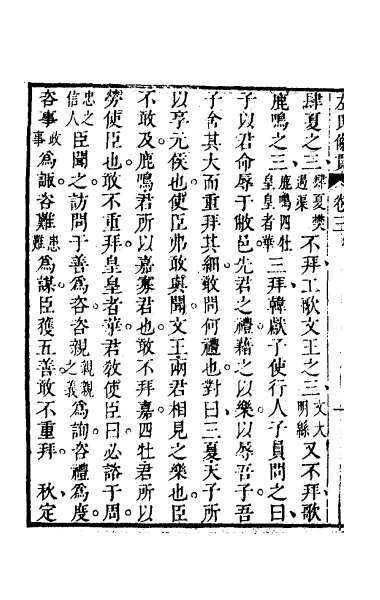 肆夏之三肆夏樊遏渠不拜工歌文王之三文大明緜又不拜歌
鹿鳴之三鹿鳴四牡皇皇者華三拜韓獻子使行人子員問之曰
子以君命辱于敝邑先君之禮藉之以樂以辱吾子吾
子舍其大而重拜其細敢問何禮也對曰三夏天子所
以享元侯也使臣弗敢與聞文王兩君相見之樂也臣
不敢及鹿鳴君所以嘉寡君也敢不拜嘉四牡君所以
勞使臣也敢不重拜皇皇者華君教使臣曰必諮于周
忠之信人臣聞之訪問于善為咨咨親親親之義為詢咨禮為度
咨事政事為諏咨難患難為謀臣獲五善敢不重拜　秋定